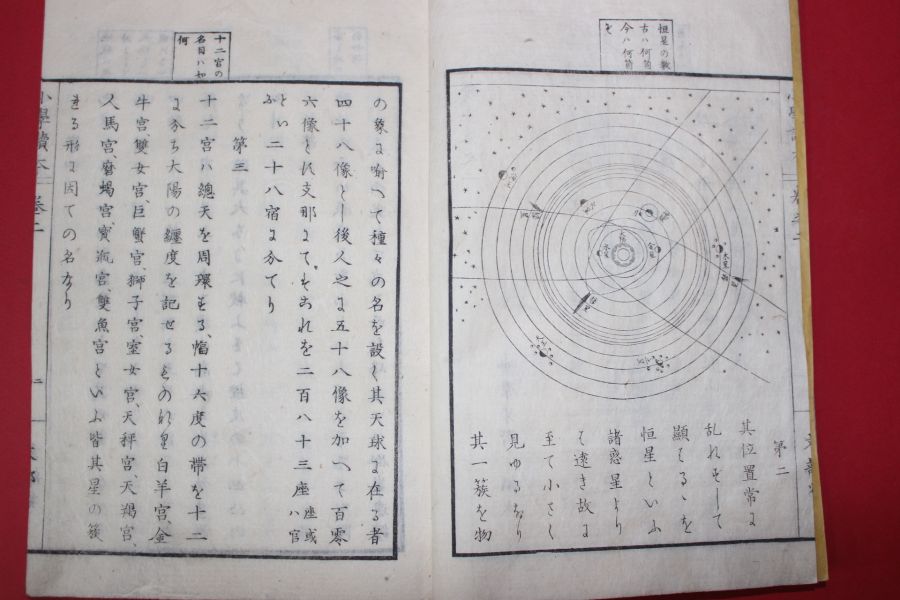 恒星の数
古ハ何箇
今ハ何箇
ぞ
第二
其位置常に
乱れずして
顕はるゝを
恒星といふ
諸惑星より
も遠き故に
至て小さく
見ゆるなり
其一簇を物
十二宮の
名目ハ如
何
小學讀本
巻二
の象に喻へて種々の名を設く其天球に在る者
四十八像とし後人之に五十八像を加へて百零
六像とす支那にてもこれを二百八十三座座或ハ官
といふ二十八宿に分てり
第三
十二宮ハ總天を周環せる、幅十六度の帯を十二
に分ち大陽の纏度を記せるものにて白羊宮、金
牛宮、雙女宮、巨蟹宮、獅子宮、室女宮、天秤宮、天羯宮、
人馬宮、磨蝎宮、寳瓶宮、雙魚宮といふ皆其星の簇
まる形に因ての名なり
二